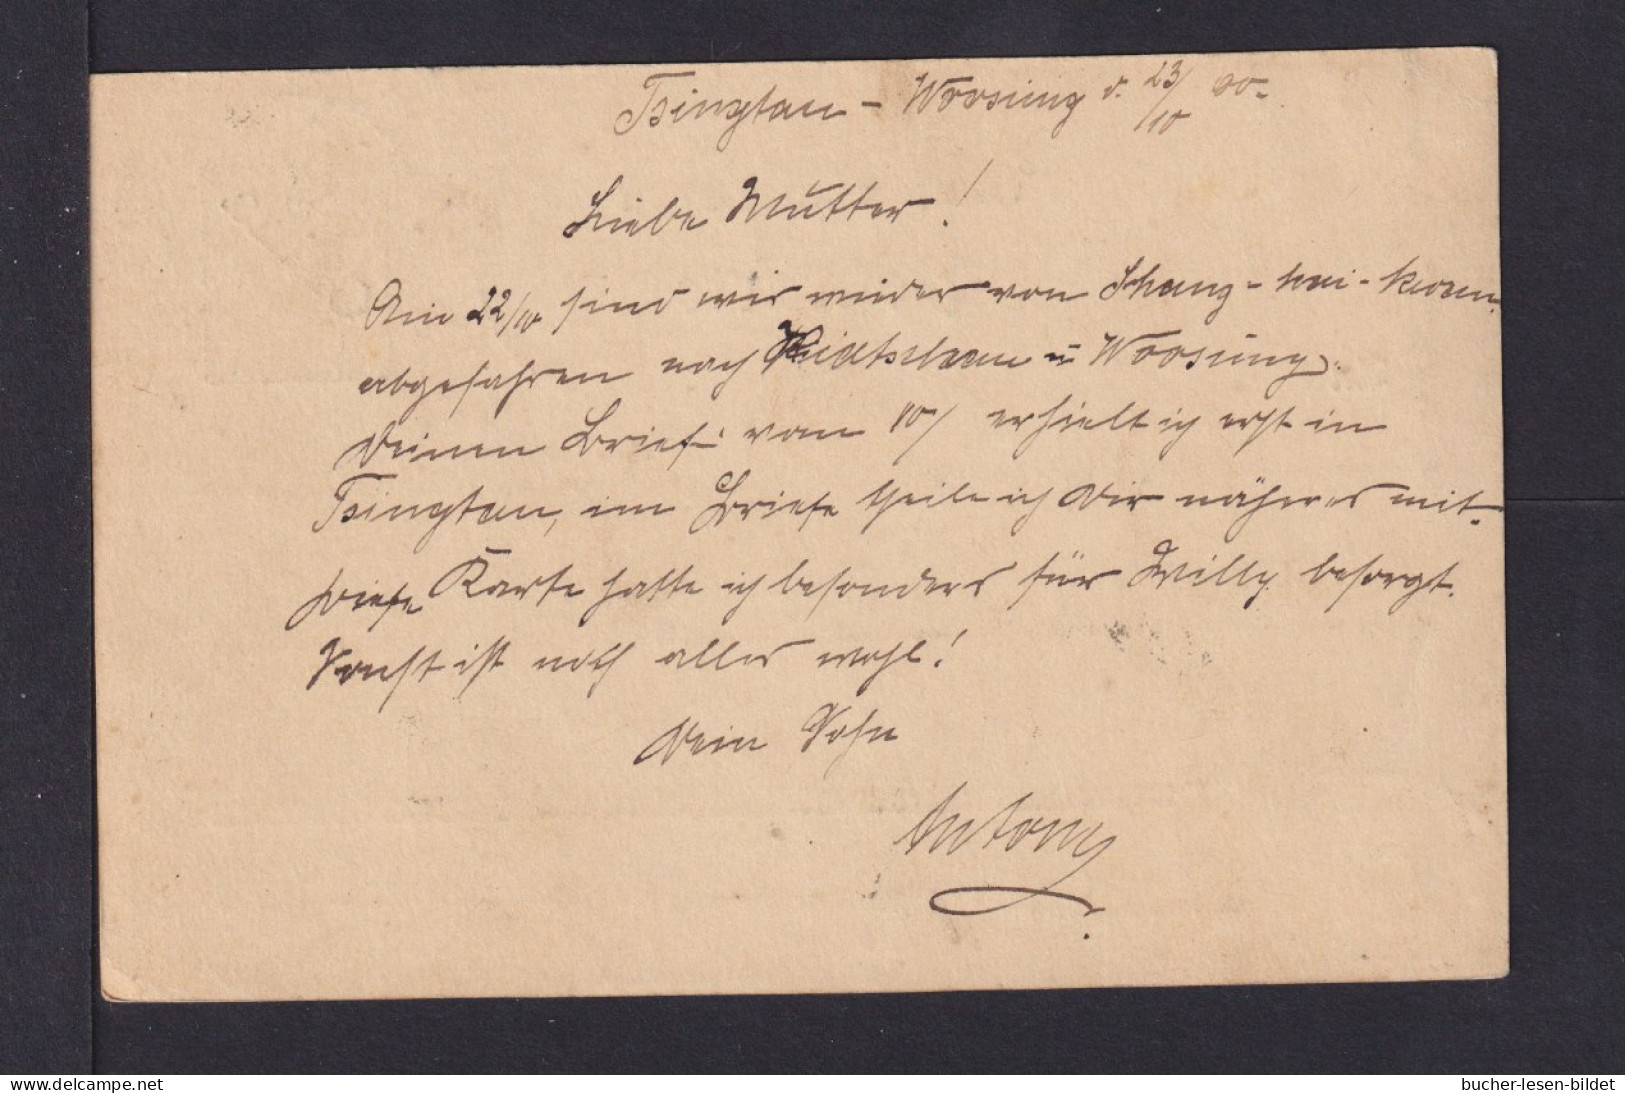 Tsingtau - Woosung d. 23/10 00.
Liebe Mutter!
Am 22/10 sind wir wieder von Shang-hai-kwan
abgefahren nach Kiautschau u Woosung.
Deinen Brief vom 10/ erhielt ich erst in
Tsingtau, im Briefe theile ich Dir näheres mit.
Diese Karte hatte ich besonders für Willy besorgt.
Sonst ist noch alles wohl!
Dein Sohn
Antony
delcampe.net
bucher-lesen-bildet